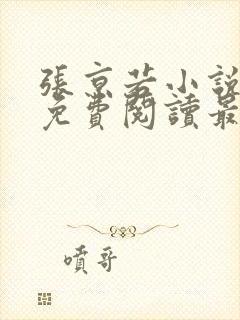 張京若小說
免費閱讀最
噴哥